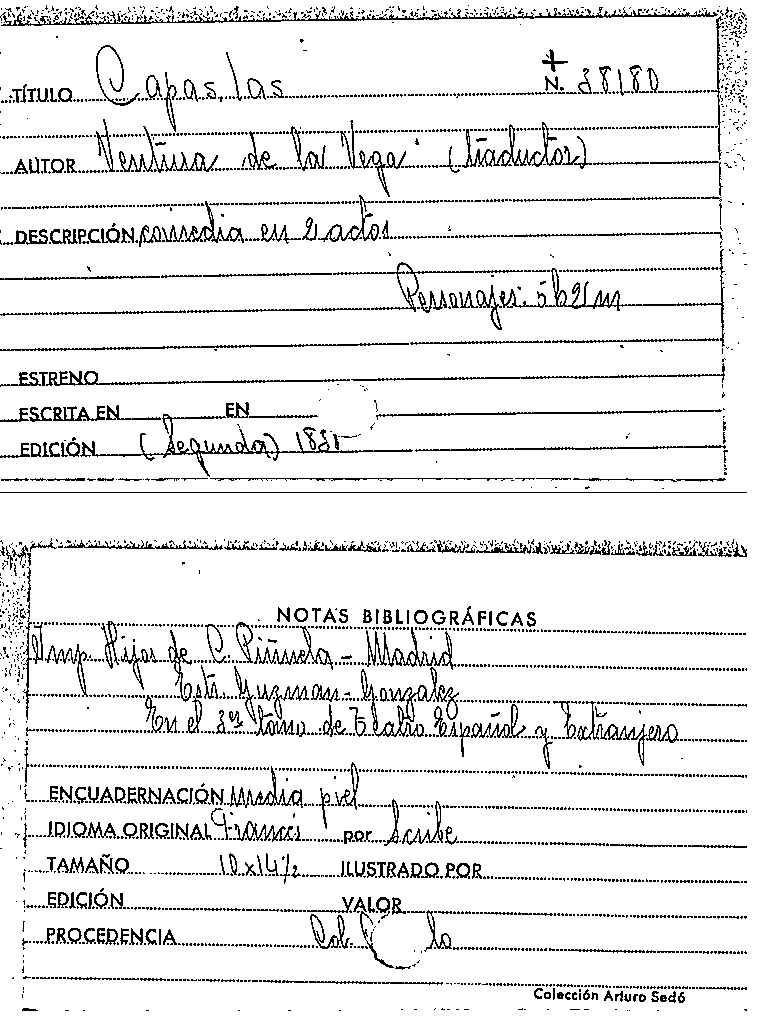 TÍTULO Capas, las + N. 38180
AUTOR Ventura de la Vega (traductor)
DESCRIPCIÓN comedia en 2 actos
Personajes: 5 h 2 m
ESTRENO
ESCRITA EN EN
EDICIÓN (Segunda) 183
NOTAS BIBLIOGRÁFICAS
Imp. Hijos de C. Piñuela - Madrid
Estr. Guzman - Gonzalez
En el 3er tomo de Teatro Español y Extranjero
ENCUADERNACIÓN media piel
IDIOMA ORIGINAL Francés por Scribe
TAMAÑO 10 x 14 1/2 ILUSTRADO POR
EDICIÓN VALOR
PROCEDENCIA Col.
Colección Arturo Sedó